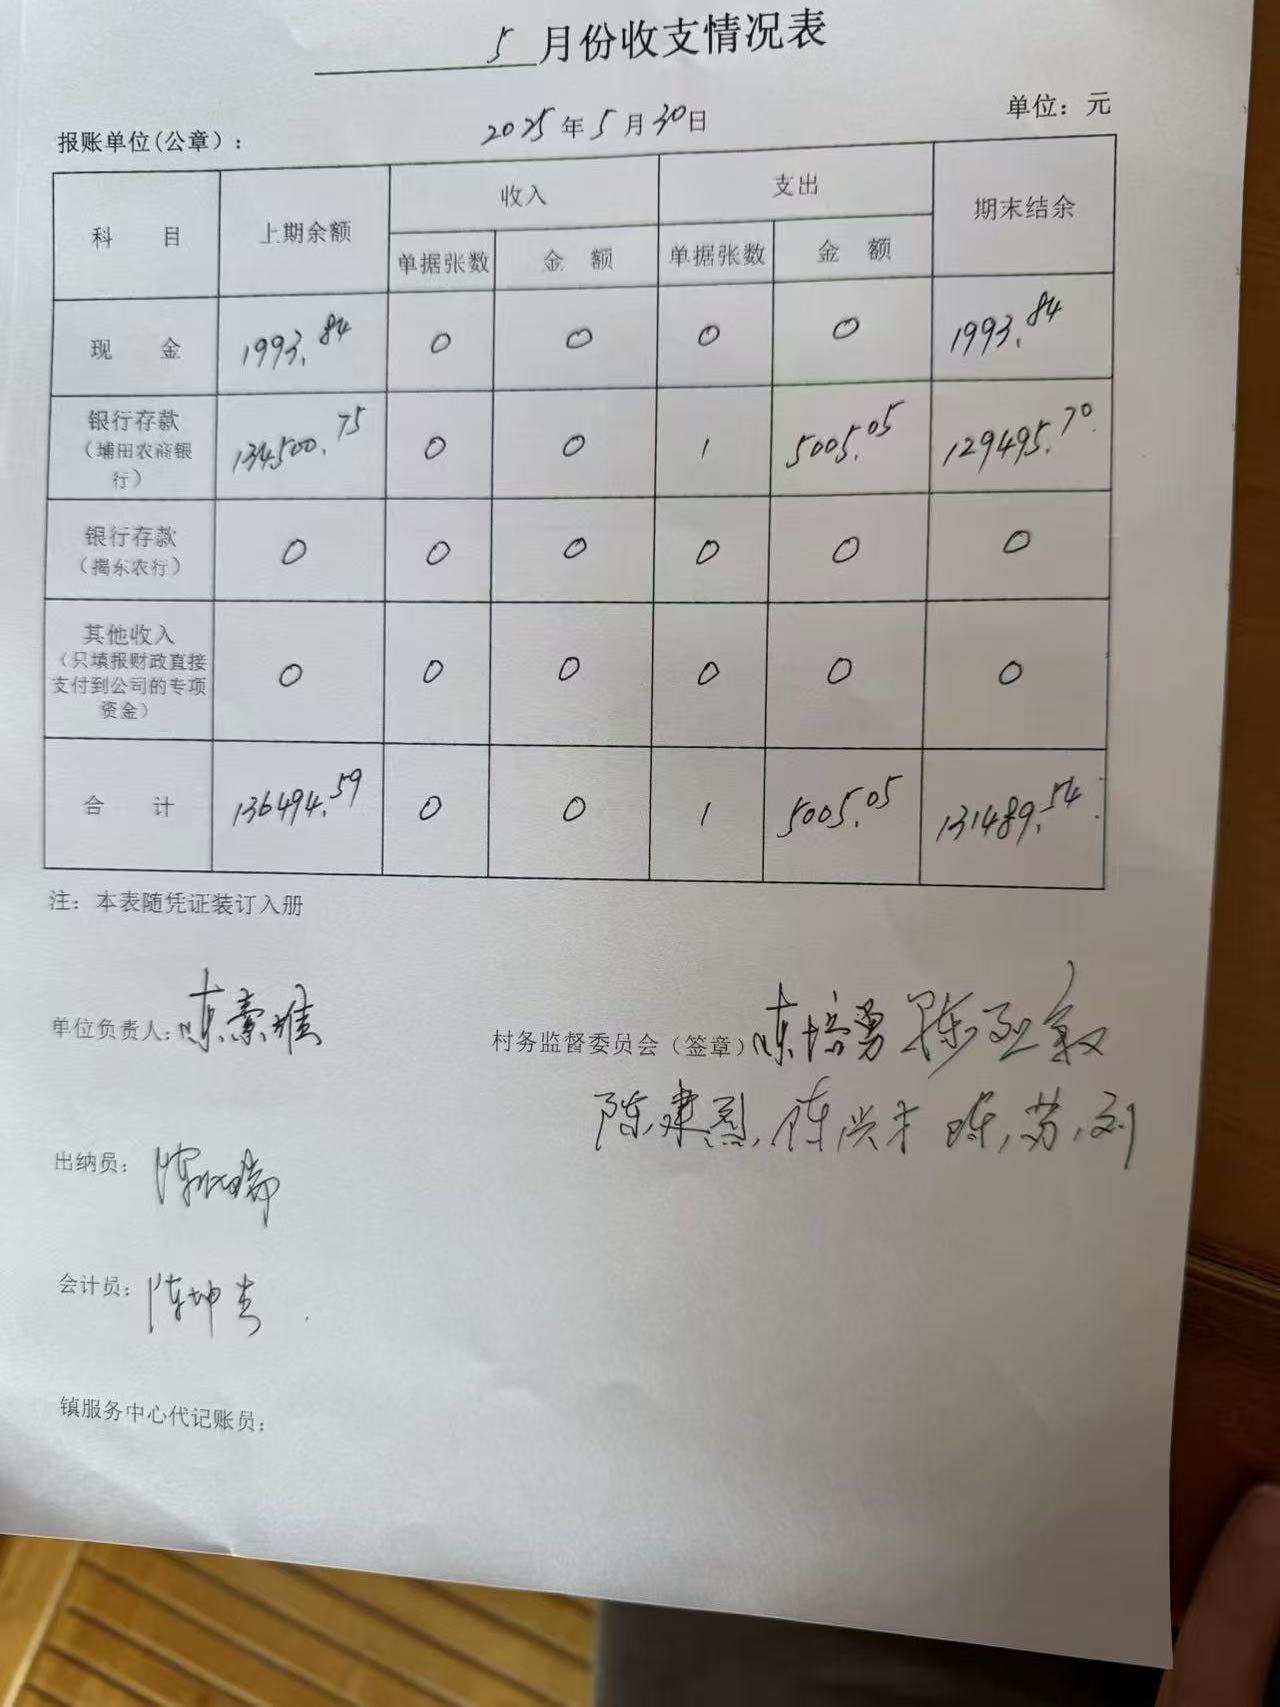 5 月份收支情况表
报账单位(公章)： 2025年5月30日 单位：元
科 目 上期余额 收入 支出 期末结余
单据张数 金 额 单据张数 金 额
现 金 1993.84 0 0 0 0 1993.84
银行存款（埔田农商银行） 134500.75 0 0 1 5005.05 129495.70
银行存款（揭东农行） 0 0 0 0 0 0
其他收入（只填报财政直接支付到公司的专项资金） 0 0 0 0 0 0
合 计 136494.59 0 0 1 5005.05 131489.54
注：本表随凭证装订入册
单位负责人: 陈 村务监督委员会（签章）陈培勇 陈
陈建烈 陈兴才 陈
出纳员： 陈
会计员： 陈坤
镇服务中心代记账员：